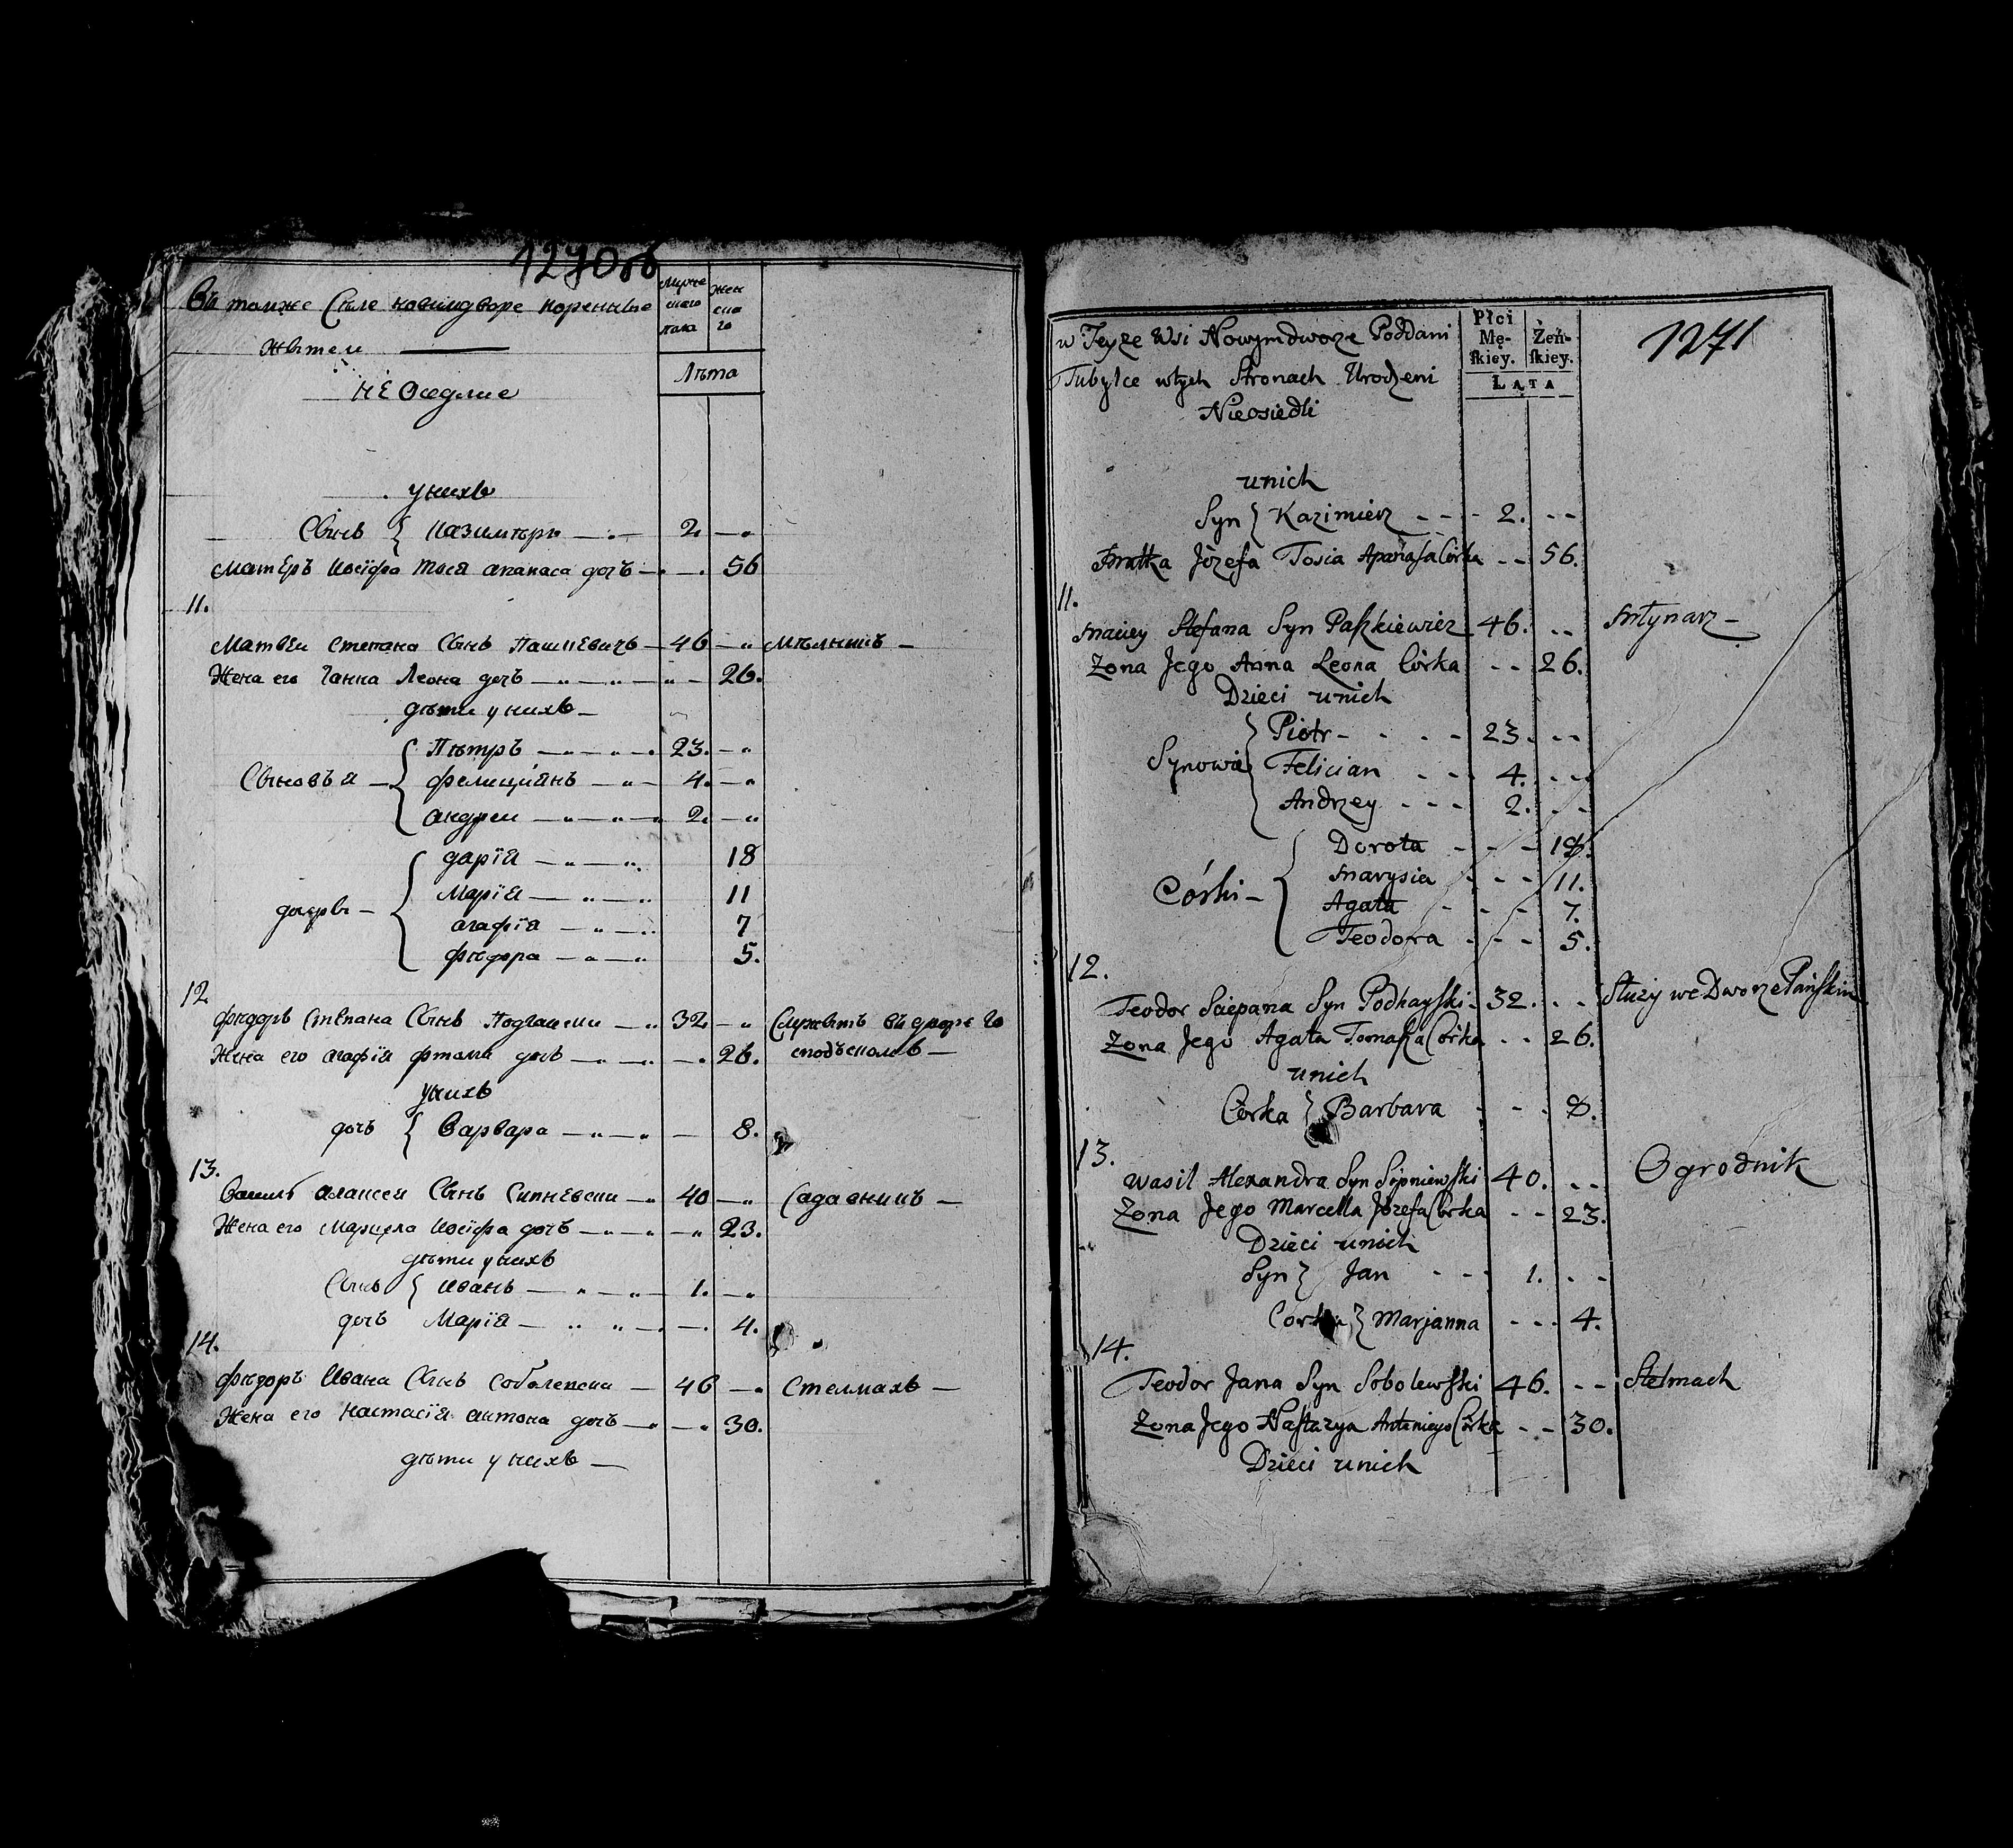 1270об
Въ томже Селе новимдворе коренные
жители
НЕ Оседлие
Муже
скаго
пола
Жен
ска
го
Лѣта
у нихъ
Сынъ { Казимѣръ 2
Матеръ Иосифа Тося апанаса дочъ 56
11.
Матвеи Степана Сынъ Пашкевичъ 46 Мѣлникъ
Жена его Ганна Леона дочъ 26.
дѣти у нихъ
Сыновъя { Пѣтръ 23.
Фелициянъ 4.
андреи 2.
дочери { дарїя 18
Марїя 11
агафїя 7
фѣдора 5.
12
Фѣдоръ Степана Сынъ Подгаиски 32 Служытъ въ дворе го
Жена его агафїя фтома дочъ 26. сподъскомъ
у нихъ
дочъ { Варвара 8.
13.
Василь алексея Сынъ Сипневски 40 Садавникъ
Жена его Марцела Иосифа дочъ 23.
дѣти у нихъ
Сынъ { Иванъ 1.
дочъ Марїя 4.
14.
Фѣдоръ Ивана Сынъ Соболевски 46 Стелмахъ
Жена его Настасїя антона дочъ 30.
дѣти у нихъ
1271
w Teyże Wsi Nowymdworze Poddani
Tubylce wtych Stronach Urodzeni
Nieosiedli
Płci
Mę-
skiey.
Żeń-
skiey.
LATA
unich
Syn } Kazimierz 2.
Matka Józefa Tosia Apanasa Córka 56.
11.
Maciey Stefana Syn Paszkiewicz 46. Młynarz
Żona Jego Anna Leona Córka 26.
Dzieci unich
Synowie } Piotr 23.
Felician 4.
Andrzey 2.
Córki { Dorota 18.
Marysia 11.
Agata 7.
Teodora 5.
12.
Teodor Sciepana Syn Podhayski 32. Służy we Dworze Pańskim
Żona Jego Agata Tomasza Córka 26.
unich
Córka } Barbara 8.
13.
Wasil Alexandra Syn Sipniewski 40. Ogrodnik
Żona Jego Marcella Józefa Córka 23.
Dzieci unich
Syn } Jan 1.
Córka } Marjanna 4.
14.
Teodor Jana Syn Sobolewski 46. Stelmach
Żona Jego Nastazya Antoniego Córka 30.
Dzieci unich